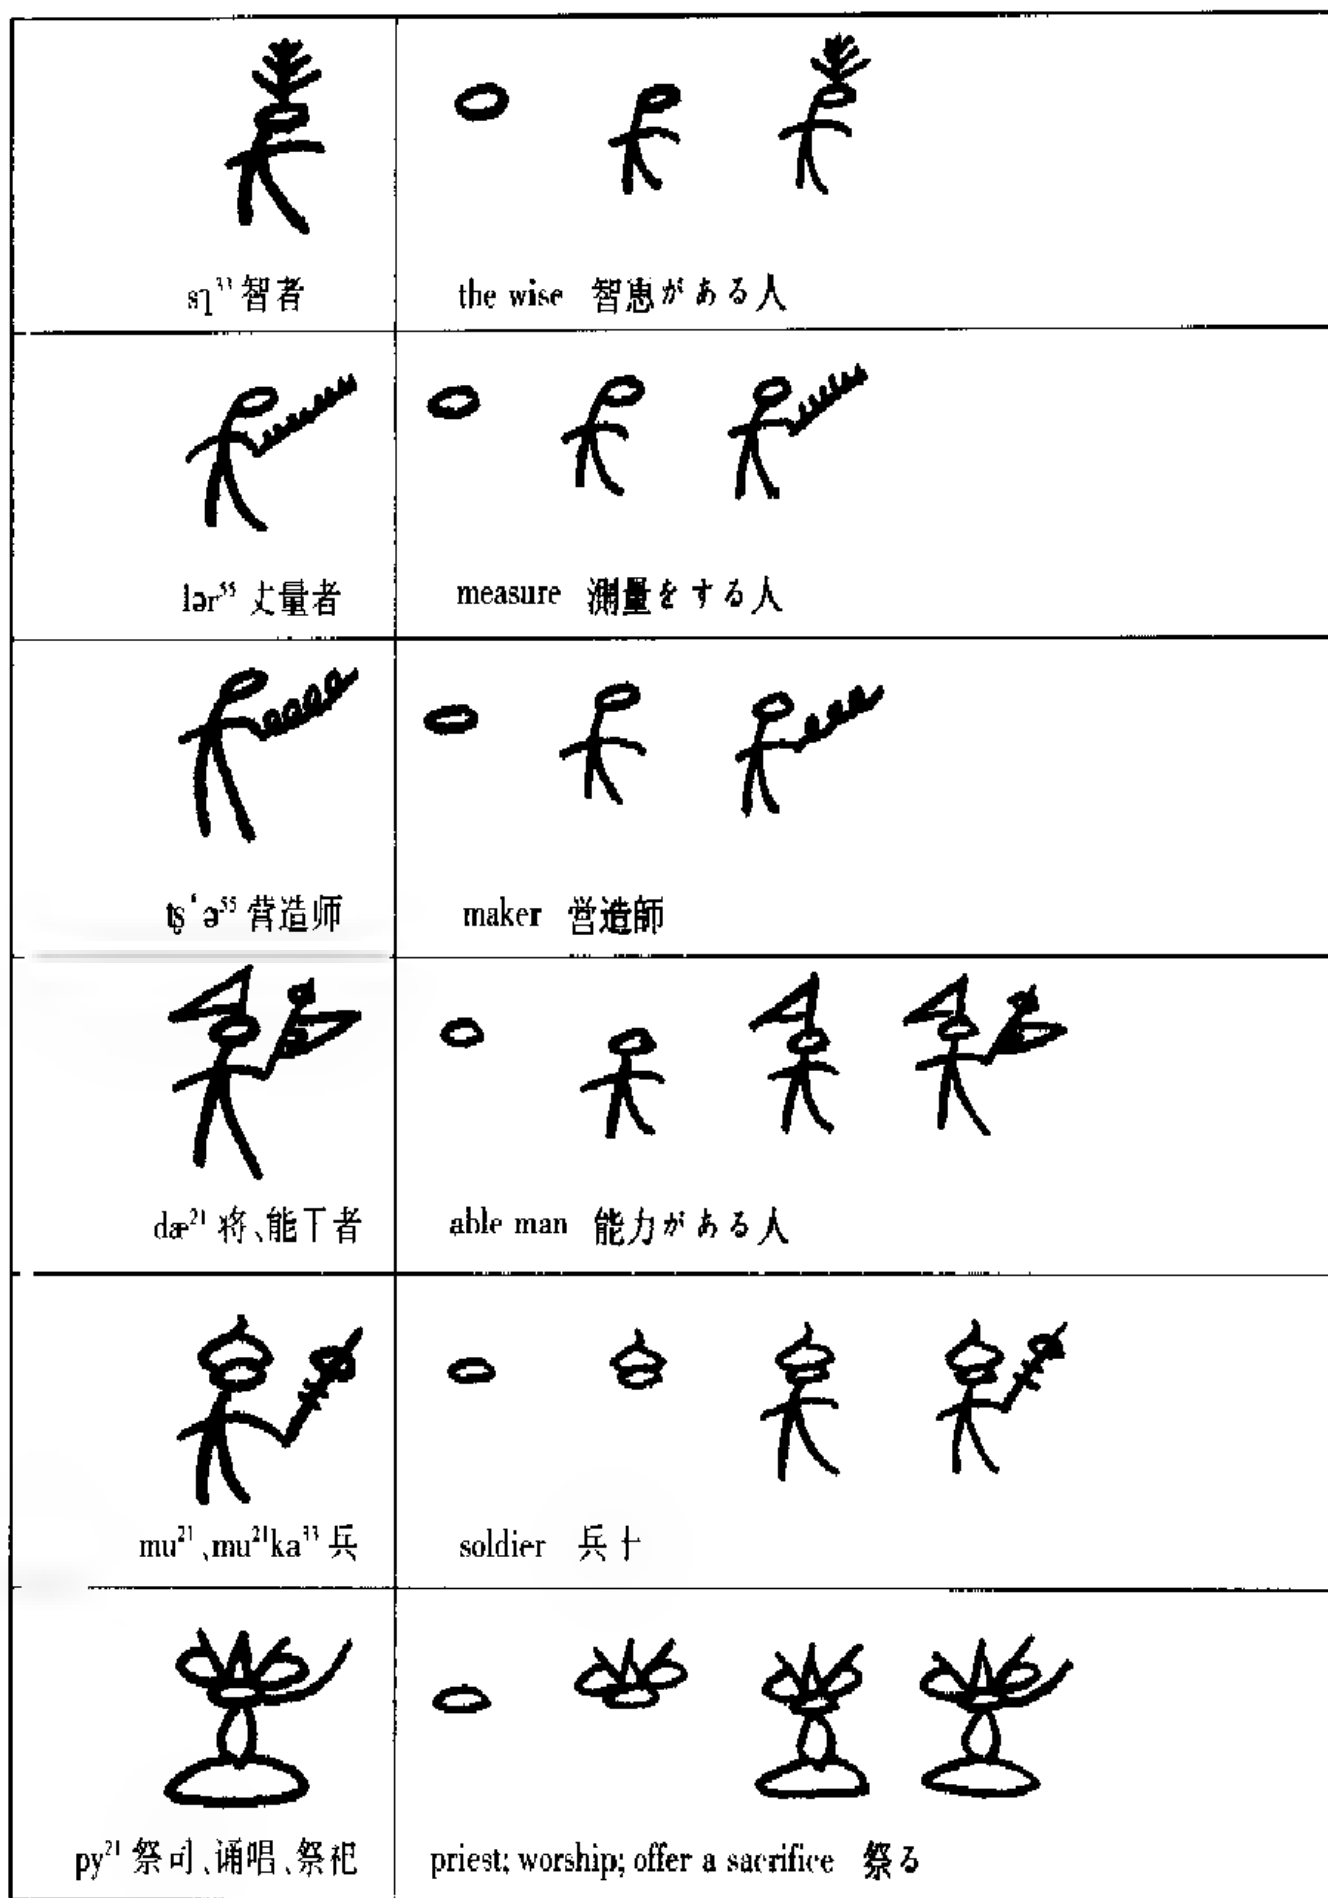 sɿ³³ 智者
the wise 智恵がある人
lər⁵⁵ 丈量者
measure 測量をする人
tʂʻə⁵⁵ 营造师
maker 営造師
dæ²¹ 将、能干者
able man 能力がある人
mu²¹、mu²¹ka³³ 兵
soldier 兵士
py²¹ 祭司、诵唱、祭祀
priest; worship; offer a sacrifice 祭る